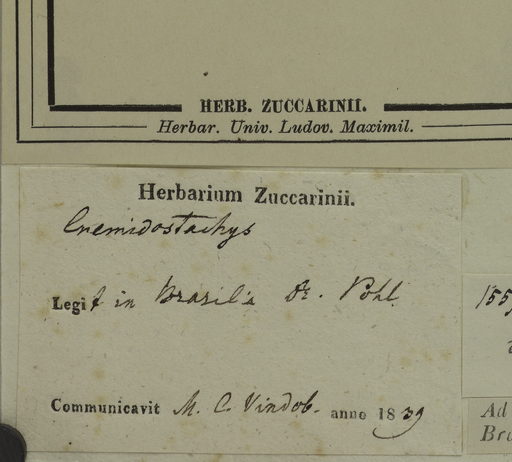 HERB. ZUCCARINII.
Herbar. Univ. Ludov. Maximil.
Herbarium Zuccarinii.
Cnemidostachys
Legit in Brasilia Dr. Pohl.
Communicavit M. C. Vindob. anno 1839
155
Ad
Bra